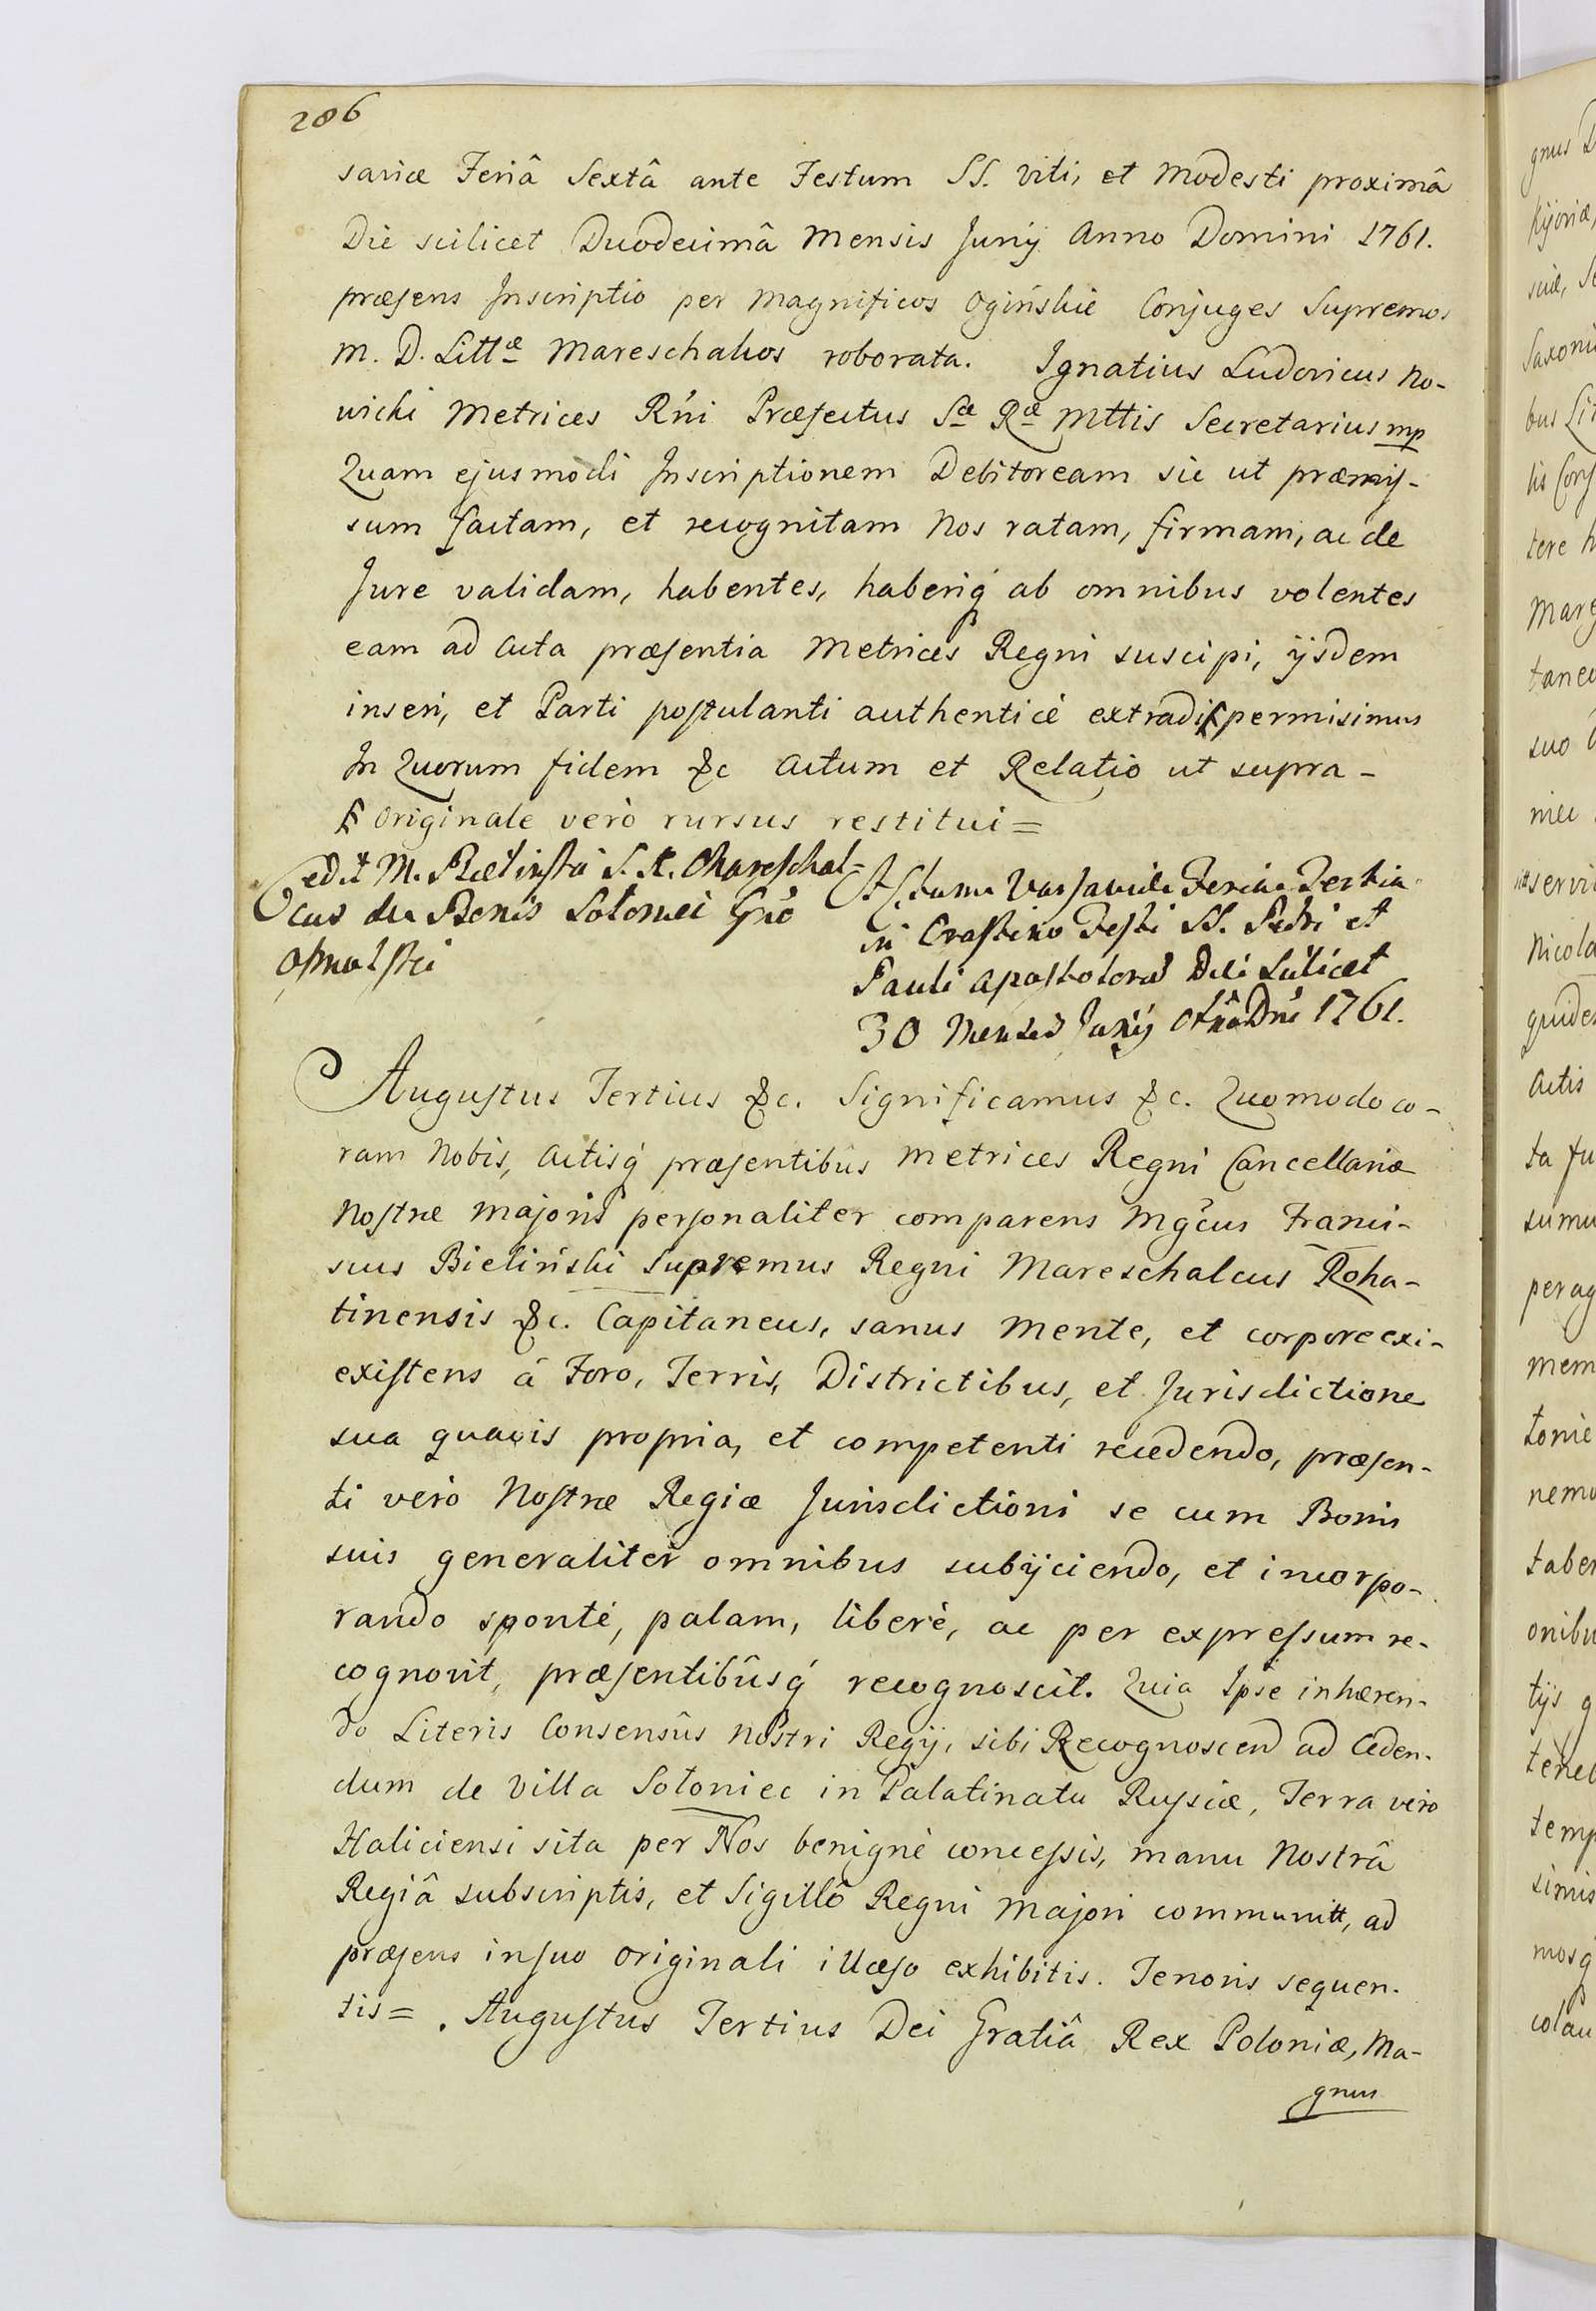 206
sariæ Feriâ Sextâ ante Festum SS. Viti, et Modesti proximâ
Die scilicet Duodecimâ Mensis Junij Anno Domini 1761.
præsens Inscriptio per Magnificos Ogińskie Conjuges Supremos
M. D. Littæ Mareschalcos roborata. Ignatius Ludovicus No-
wicki Metrices Rńi Præfectus Sæ Ræ Mttis Secretarius mp
Quam ejusmodi Inscriptionem Debitoream sic ut præmis-
sum factam, et recognitam Nos ratam, firmam, ac de
Jure validam, habentes, haberiq́ ab omnibus volentes
eam ad Acta præsentia Metrices Regni suscipi, ijsdem
inseri, et Parti postulanti authenticè extradi permisimus
In Quorum fidem &c Actum et Relatio ut supra -
Originale verò rursus restitui =
Cedit M. Bielinski S. R. Mareschal-
cus de Bonis Sołoniec Gńo
Actum Varsaviæ Feria Tertia
in Crastino Festi SS. Petri et
Pauli Apostolorum Die Scilicet
30 Mensis Junij Añô Dńi 1761.
Augustus Tertius &c. Significamus &c. Quomodo co-
ram Nobis, Actisq́ præsentibûs Metrices Regni Cancellariæ
Nostræ Majoris personaliter comparens Mgćus Franci-
scus Bieliński Supremus Regni Mareschalcus Roha-
tinensis &c. Capitaneus, sanus Mente, et corpore exi-
existens á Foro, Terris, Districtibus, et Jurisdictione
sua quavis propria, et competenti recedendo, præsen-
ti verò Nostræ Regiæ Jurisdictioni se cum Bonis
suis generaliter omnibus subijciendo, et incorpo-
rando spontè, palam, liberè, ac per expressum re-
cognovit, præsentibûsq́ recognoscit. Quia Ipse inhæren-
do Literis Consensûs Nostri Regij, sibi Recognoscend ad Ceden-
dum de Villa Sołoniec in Palatinatu Russiæ, Terra vero
Haliciensi sita per Nos benignè concessis, manu Nostrâ
Regiâ subscriptis, et Sigillô Regni Majori communitt, ad
præsens in suo Originali illæso exhibitis. Tenoris sequen-
tis = . Augustus Tertius Dei Gratiâ Rex Poloniæ, Ma-
gnus